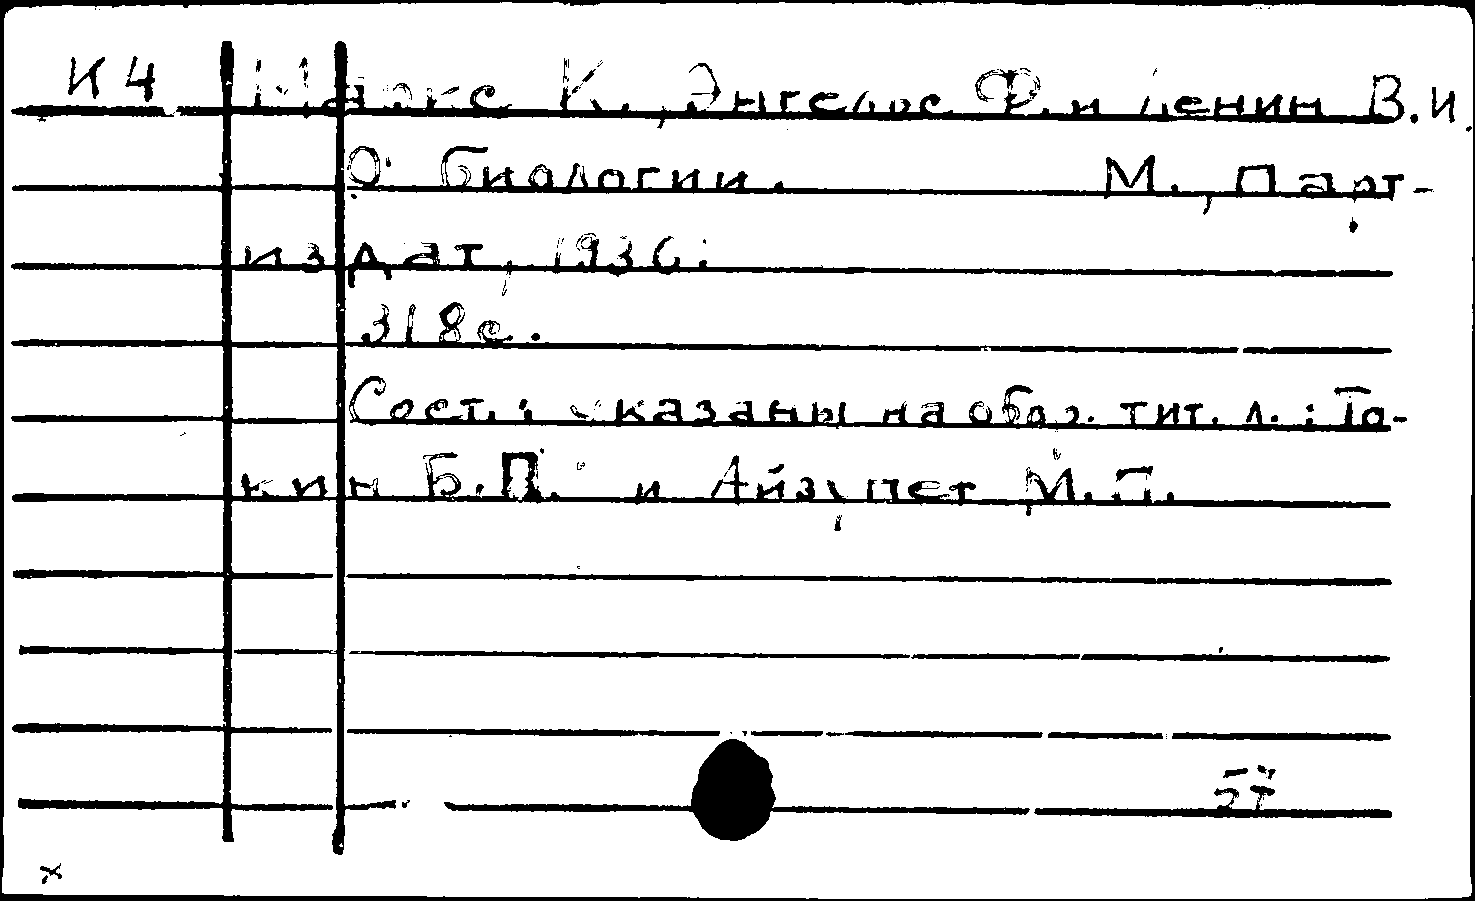 К4 Маркс К., Энгельс Ф. и Ленин В.И.
О биологии. М., Парт-
издат, 1936.
318с.
Сост.: указаны на обор. тит. л.: То-
кин Б.П. и Айзупет М.П.